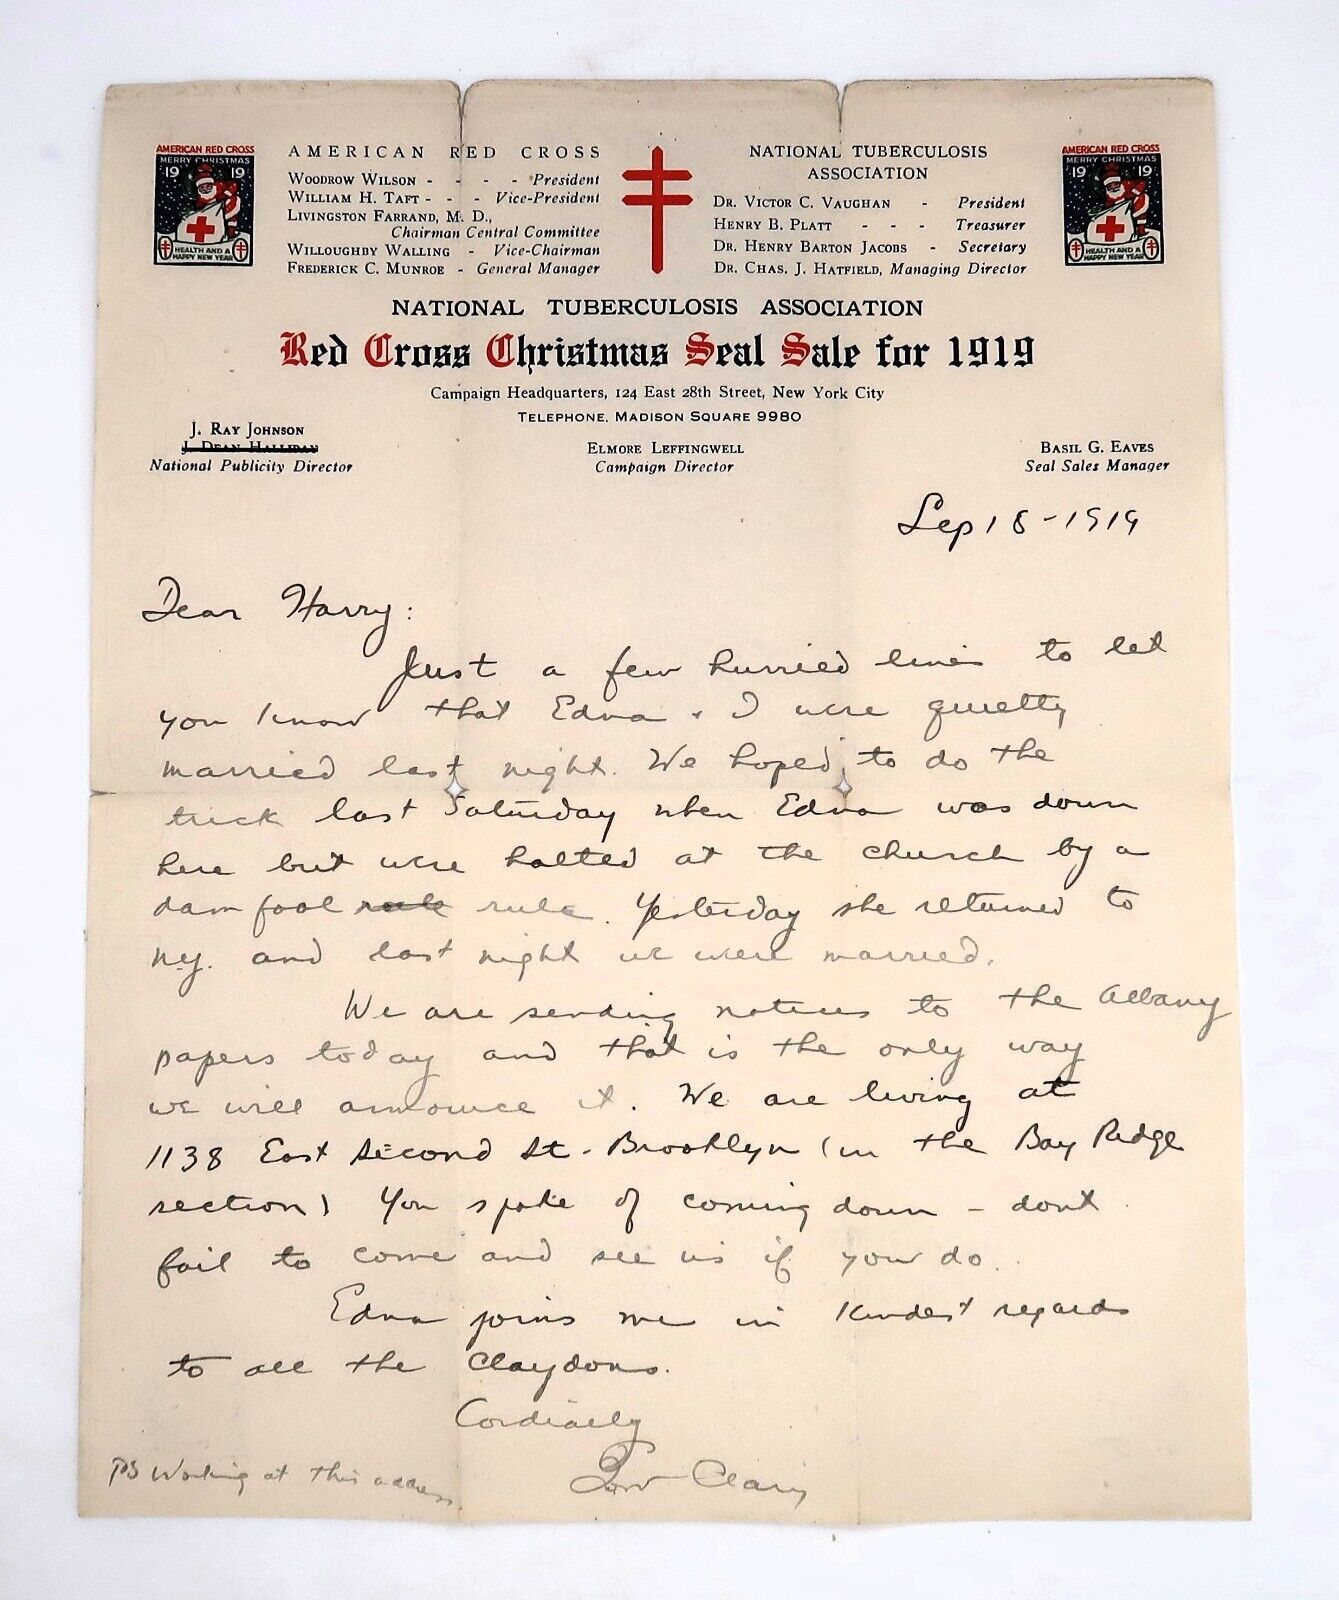 AMERICAN RED CROSS
MERRY CHRISTMAS
19 19
HEALTH AND A
HAPPY NEW YEAR
AMERICAN RED CROSS
WOODROW WILSON - - - - President
WILLIAM H. TAFT - - - Vice-President
LIVINGSTON FARRAND, M. D.,
Chairman Central Committee
WILLOUGHBY WALLING - Vice-Chairman
FREDERICK C. MUNROE - General Manager
NATIONAL TUBERCULOSIS
ASSOCIATION
DR. VICTOR C. VAUGHAN - President
HENRY B. PLATT - - - Treasurer
DR. HENRY BARTON JACOBS - Secretary
DR. CHAS. J. HATFIELD, Managing Director
AMERICAN RED CROSS
MERRY CHRISTMAS
19 19
HEALTH AND A
HAPPY NEW YEAR
NATIONAL TUBERCULOSIS ASSOCIATION
Red Cross Christmas Seal Sale for 1919
Campaign Headquarters, 124 East 28th Street, New York City
TELEPHONE, MADISON SQUARE 9980
J. RAY JOHNSON
J. DEAN HALLIDAY
National Publicity Director
ELMORE LEFFINGWELL
Campaign Director
BASIL G. EAVES
Seal Sales Manager
Sep 18 - 1919
Dear Harry:
Just a few hurried lines to let
you know that Edna & I were quietly
married last night. We hoped to do the
trick last Saturday when Edna was down
here but were halted at the church by a
dam fool rule rule. Yesterday she returned to
N.Y. and last night we were married.
We are sending notices to the Albany
papers today and that is the only way
we will announce it. We are living at
1138 East Second St. Brooklyn (in the Bay Ridge
section) You spoke of coming down - dont
fail to come and see us if you do.
Edna joins me in kindest regards
to all the Claydons.
Cordially
PS Working at this address.